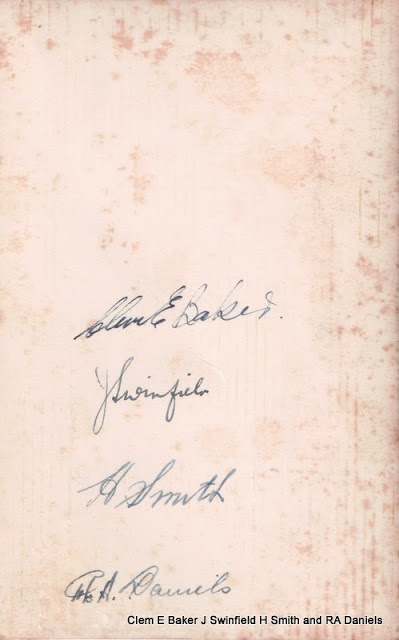 Clem E Baker.
J Swinfield
H Smith
R. A. Daniels
Clem E Baker J Swinfield H Smith and RA Daniels